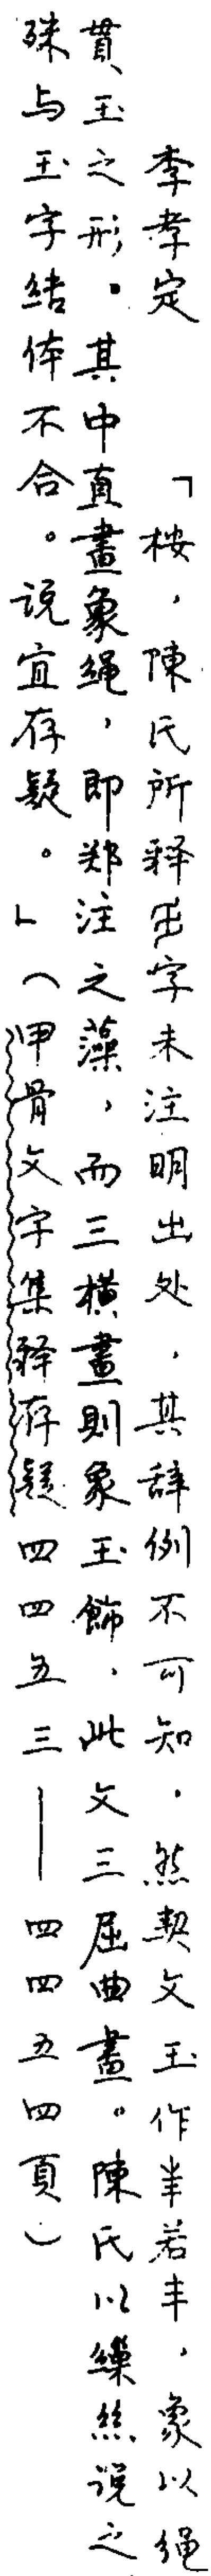 李孝定　「桉，陳氏所释𤣩字未注明出处，其辞例不可知，然契文玉作𰀁若丰，象以绳
贯玉之形。其中直畫象绳，即郑注之藻，而三横畫則象玉飾，此文三屈曲畫。陳氏以缫絲说之
殊与玉字结体不合。说宜存疑。」（甲骨文字集释存疑四四五三——四四五四頁）